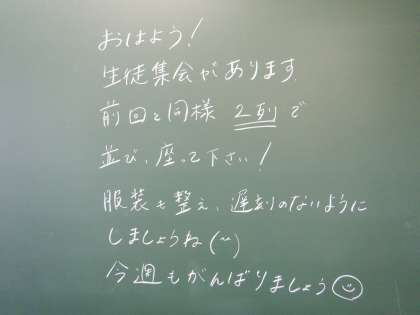 おはよう!
生徒集会があります
前回と同様 2列で
並び、座って下さい!
服装も整え、遅刻のないように
しましょうね(^^)
今週もがんばりましょう☺